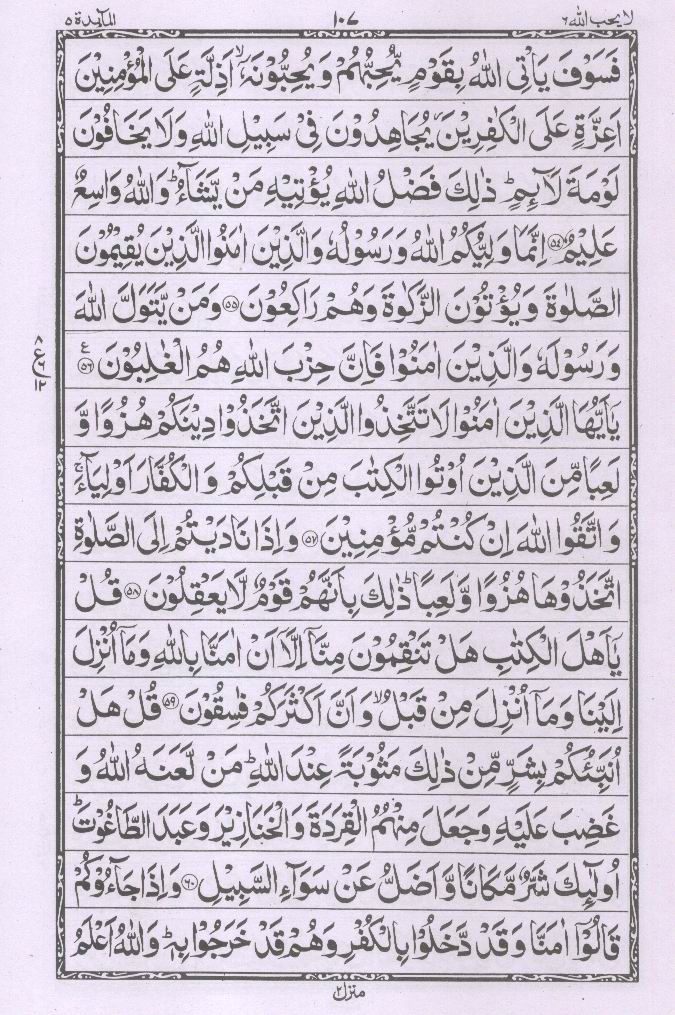 لا يحب الله ٦
١٠٧
المآئدة ٥
فَسَوْفَ يَاْتِى اللّٰهُ بِقَوْمٍ يُّحِبُّهُمْ وَ يُحِبُّوْنَهٗۤ ۙ اَذِلَّةٍ عَلَى الْمُؤْمِنِيْنَ
اَعِزَّةٍ عَلَى الْكٰفِرِيْنَ ؗ يُجَاهِدُوْنَ فِىْ سَبِيْلِ اللّٰهِ وَلَا يَخَافُوْنَ
لَوْمَةَ لَآئِمٍ ؕ ذٰلِكَ فَضْلُ اللّٰهِ يُؤْتِيْهِ مَنْ يَّشَآءُ ؕ وَاللّٰهُ وَاسِعٌ
عَلِيْمٌ ۝٥٤ اِنَّمَا وَلِيُّكُمُ اللّٰهُ وَرَسُوْلُهٗ وَالَّذِيْنَ اٰمَنُوا الَّذِيْنَ يُقِيْمُوْنَ
الصَّلٰوةَ وَيُؤْتُوْنَ الزَّكٰوةَ وَهُمْ رَاكِعُوْنَ ۝٥٥ وَمَنْ يَّتَوَلَّ اللّٰهَ
وَ رَسُوْلَهٗ وَالَّذِيْنَ اٰمَنُوْا فَاِنَّ حِزْبَ اللّٰهِ هُمُ الْغٰلِبُوْنَ ۝٥٦ ع
يٰۤاَيُّهَا الَّذِيْنَ اٰمَنُوْا لَا تَتَّخِذُوا الَّذِيْنَ اتَّخَذُوْا دِيْنَكُمْ هُزُوًا وَّ
لَعِبًا مِّنَ الَّذِيْنَ اُوْتُوا الْكِتٰبَ مِنْ قَبْلِكُمْ وَ الْكُفَّارَ اَوْلِيَآءَ ۚ
وَ اتَّقُوا اللّٰهَ اِنْ كُنْتُمْ مُّؤْمِنِيْنَ ۝٥٧ وَ اِذَا نَادَيْتُمْ اِلَى الصَّلٰوةِ
اتَّخَذُوْهَا هُزُوًا وَّ لَعِبًا ؕ ذٰلِكَ بِاَنَّهُمْ قَوْمٌ لَّا يَعْقِلُوْنَ ۝٥٨ قُلْ
يٰۤاَهْلَ الْكِتٰبِ هَلْ تَنْقِمُوْنَ مِنَّاۤ اِلَّاۤ اَنْ اٰمَنَّا بِاللّٰهِ وَمَاۤ اُنْزِلَ
اِلَيْنَا وَمَاۤ اُنْزِلَ مِنْ قَبْلُ ۙ وَ اَنَّ اَكْثَرَكُمْ فٰسِقُوْنَ ۝٥٩ قُلْ هَلْ
اُنَبِّئُكُمْ بِشَرٍّ مِّنْ ذٰلِكَ مَثُوْبَةً عِنْدَ اللّٰهِ ؕ مَنْ لَّعَنَهُ اللّٰهُ وَ
غَضِبَ عَلَيْهِ وَجَعَلَ مِنْهُمُ الْقِرَدَةَ وَ الْخَنَازِيْرَ وَعَبَدَ الطَّاغُوْتَ ؕ
اُولٰٓئِكَ شَرٌّ مَّكَانًا وَّ اَضَلُّ عَنْ سَوَآءِ السَّبِيْلِ ۝٦٠ وَاِذَا جَآءُوْكُمْ
قَالُوْۤا اٰمَنَّا وَ قَدْ دَّخَلُوْا بِالْكُفْرِ وَهُمْ قَدْ خَرَجُوْا بِهٖ ؕ وَاللّٰهُ اَعْلَمُ
منزل ٢